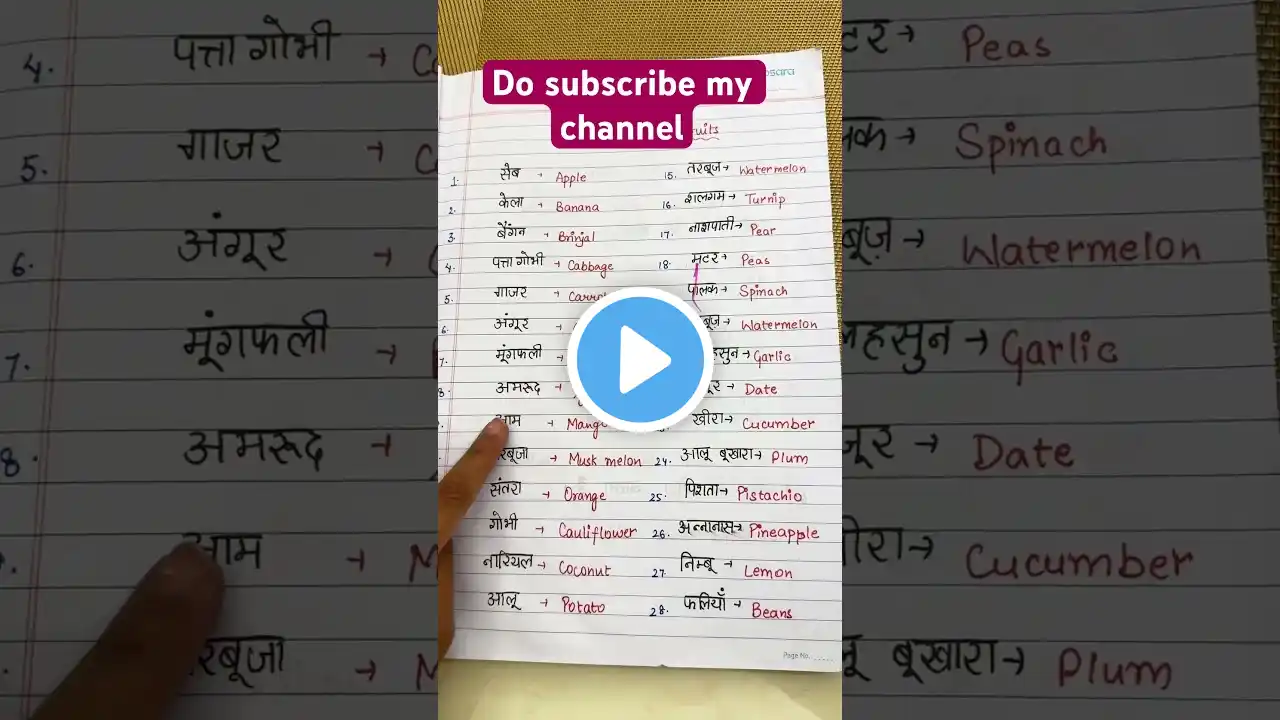 4. पत्ता गोभी →
5. गाजर →
6. अंगूर →
7. मूंगफली →
8. अमरूद →
आम →
→
Do subscribe my
channel
1. सेब → Apple
2. केला → Banana
3. बैंगन → Brinjal
4. पत्ता गोभी → Cabbage
5. गाजर →
6. अंगूर
7. मूंगफली →
अमरूद →
आम →
→ Musk melon
संतरा → Orange
गोभी → Cauliflower
नारियल → Coconut
आलू → Potato
15. तरबूज → Watermelon
16. शलगम → Turnip
17. नाशपाती → Pear
18. मटर → Peas
पालक → Spinach
→ Watermelon
→ Garlic
→ Date
खीरा → Cucumber
24. आलू बूखारा → Plum
25. पिशता → Pistachio
26. अन्नानास → Pineapple
27. निम्बू → Lemon
28. फलियाँ → Beans
Page No.
→ Peas
→ Spinach
→ Watermelon
→ Garlic
→ Date
→ Cucumber
बूखारा → Plum